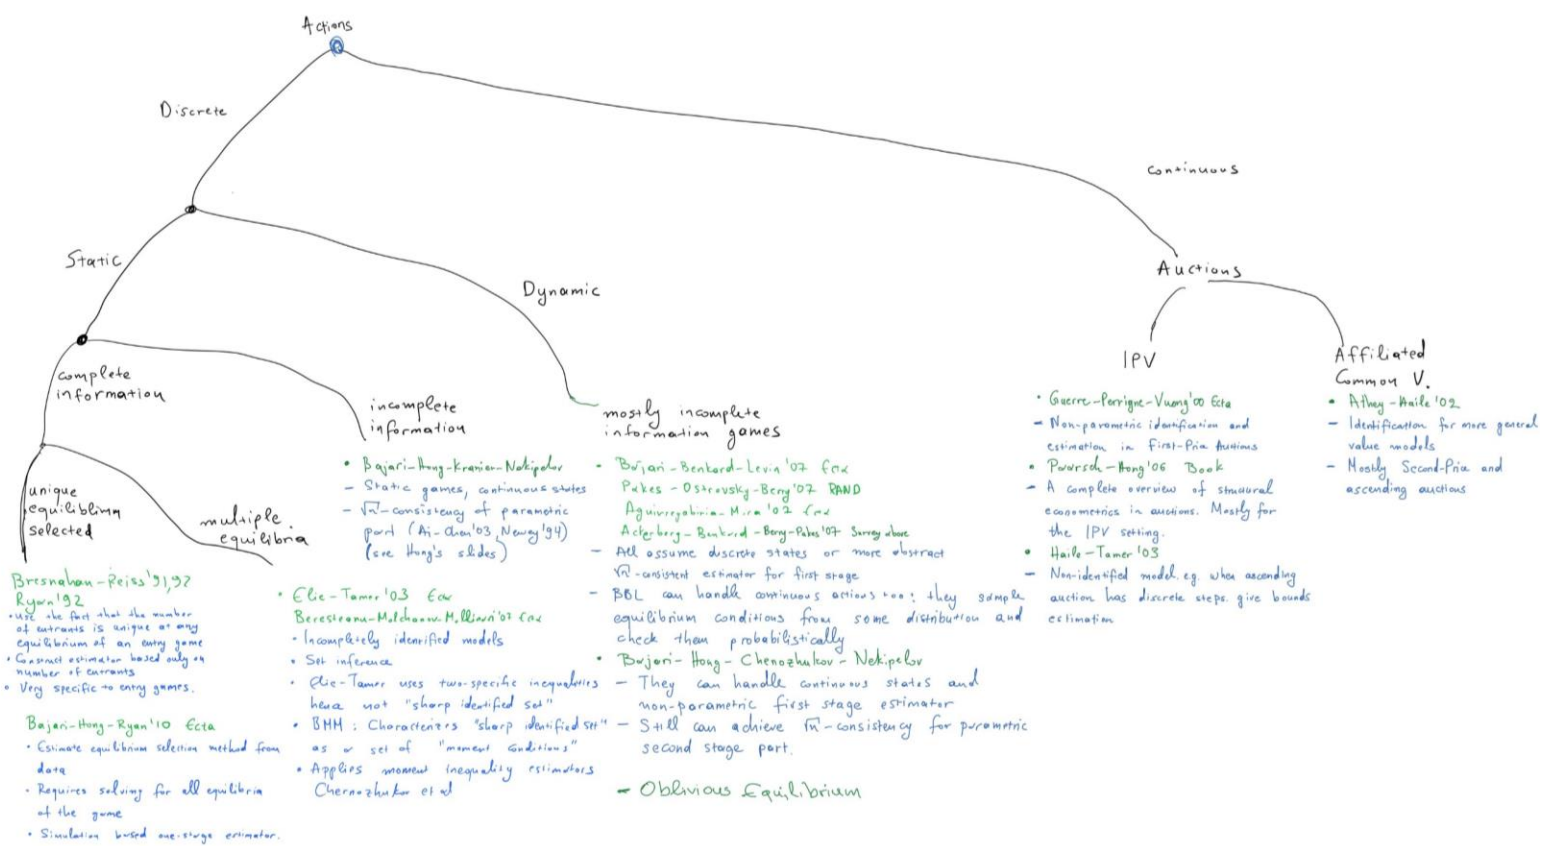 Actions
Discrete
continuous
Static
Dynamic
Auctions
complete
information
incomplete
information
mostly incomplete
information games
IPV
Affiliated
Common V.
unique
equilibrium
selected
multiple
equilibria
Bresnahan-Reiss'91,92
Ryan'92
• use the fact that the number
of entrants is unique at any
equilibrium of an entry game
• Construct estimator based only on
number of entrants
• Very specific to entry games.
Bajari-Hong-Ryan'10 Ecta
• Estimate equilibrium selection method from
data
• Requires solving for all equilibria
of the game
• Simulation based one-stage estimator.
• Elie-Tamer'03 Ecx
Beresteanu-Molchanov-Mollinari'07 Ecx
• Incompletely identified models
• Set inference
• Elie-Tamer uses two-specific inequalities
hence not "sharp identified set"
• BMM: Characterizes "sharp identified set"
as a set of "moment conditions"
• Applies moment inequality estimators
Chernozhukov et al
• Bajari-Hong-Kranier-Nekipelov
– Static games, continuous states
– √n-consistency of parametric
part (Ai-Chen'03, Newey'94)
(see Hong's slides)
• Bajari-Benkard-Levin'07 Ecx
Pakes-Ostrovsky-Berry'07 RAND
Aguirregabiria-Mira'02 Ecx
Ackerberg-Benkard-Berry-Pakes'07 Survey above
– All assume discrete states or more abstract
√n-consistent estimator for first stage
– BBL can handle continuous actions too: they sample
equilibrium conditions from some distribution and
check them probabilistically
• Bajari-Hong-Chenozhukov-Nekipelov
– They can handle continuous states and
non-parametric first stage estimator
– Still can achieve √n-consistency for parametric
second stage part.
– Oblivious Equilibrium
• Guerre-Perrigne-Vuong'00 Ecta
– Non-parametric identification and
estimation in First-Price Auctions
• Paarsch-Hong'06 Book
– A complete overview of structural
econometrics in auctions. Mostly for
the IPV setting.
• Haile-Tamer'03
– Non-identified model, eg. when ascending
auction has discrete steps. give bounds
estimation
• Athey-Haile'02
– Identification for more general
value models
– Mostly Second-Price and
ascending auctions